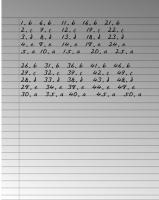 1. b 6. b 11. b 16. b 21. b
2. c 7. c 12. c 17. c 22. c
3. d 8. d 13. d 18. d 23. d
4. e 9. e 14. e 19. e 24. e
5. a 10. a 15. a 20. a 25. a
26. b 31. b 36. b 41. b 46. b
27. c 32. c 37. c 42. c 47. c
28. d 33. d 38. d 43. d 48. d
29. e 34. e 39. e 44. e 49. e
30. a 35. a 40. a 45. a 50. a